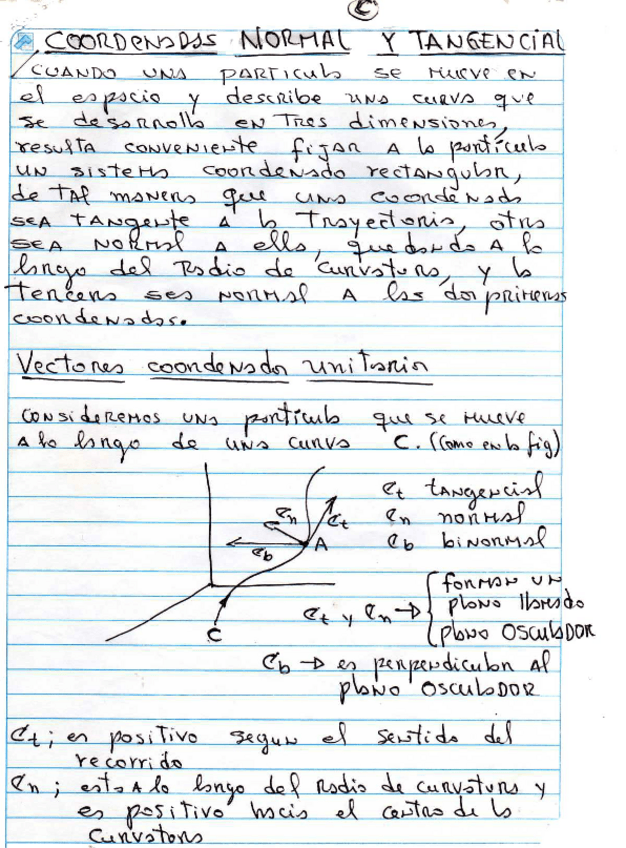 C
COORDENADAS NORMAL Y TANGENCIAL
CUANDO UNA PARTICULA se mueve en
el espacio y describe una curva que
se desarrolla en tres dimensiones,
resulta conveniente fijar a la partícula
un sistema coordenado rectangular,
de tal manera que una coordenada
sea tangente a la trayectoria, otra
sea normal a ella, quedando a lo
largo del Radio de curvatura, y la
tercera sea normal a las dos primeras
coordenadas.
Vectores coordenados unitarios
Consideremos una partícula que se mueve
a lo largo de una curva C. (Como en la fig)
et tangencial
en normal
eb binormal
en
et
eb
A
C
et y en → forman un
plano llamado
plano OSCULADOR
eb → es perpendicular al
plano OSCULADOR
et; es positivo segun el sentido del
recorrido
en; esta a lo largo del Radio de curvatura y
es positivo hacia el centro de la
curvatura